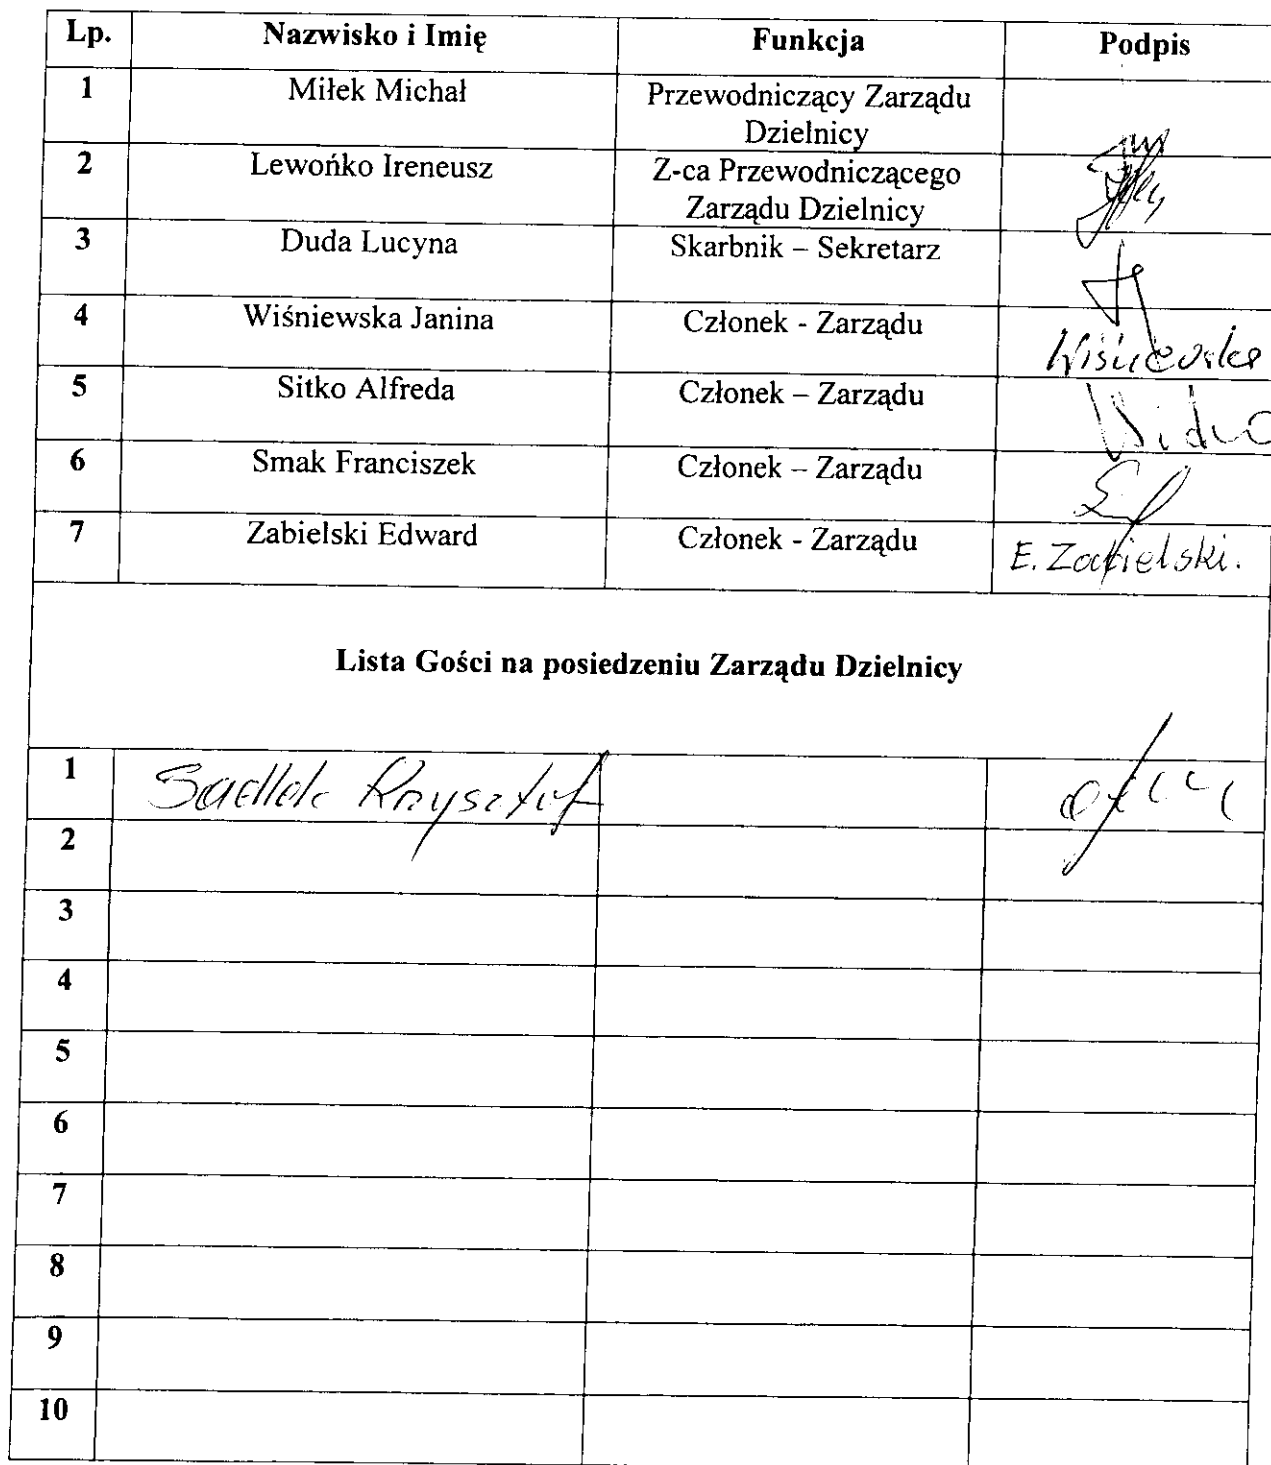 Lp. Nazwisko i Imię Funkcja Podpis
1 Miłek Michał Przewodniczący Zarządu
Dzielnicy
2 Lewońko Ireneusz Z-ca Przewodniczącego
Zarządu Dzielnicy
3 Duda Lucyna Skarbnik – Sekretarz
4 Wiśniewska Janina Członek - Zarządu
5 Sitko Alfreda Członek – Zarządu
6 Smak Franciszek Członek – Zarządu
7 Zabielski Edward Członek - Zarządu E. Zabielski.
Lista Gości na posiedzeniu Zarządu Dzielnicy
1 Krzysztof
2
3
4
5
6
7
8
9
10